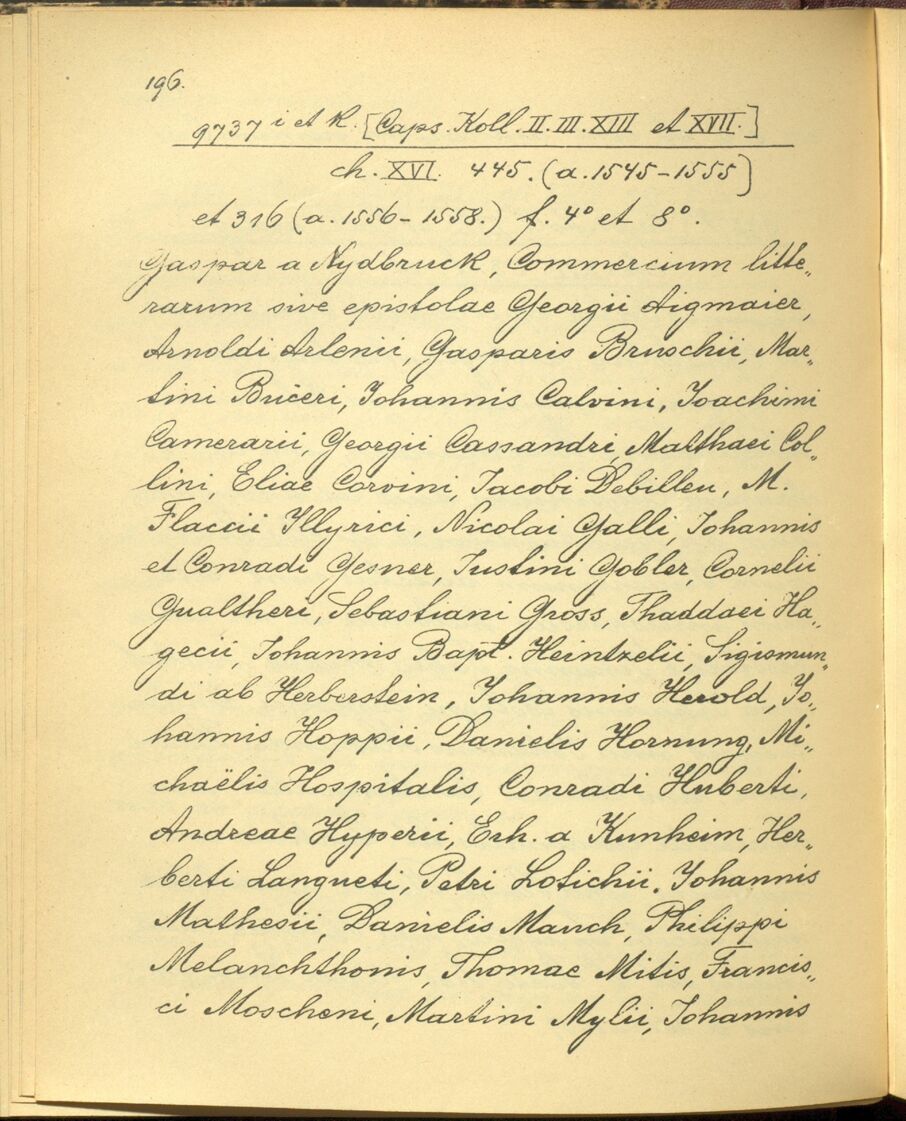 196.
9737 i et k. [Caps. Koll. II. III. XIII et XVII.]
ch. XVI. 445. (a. 1545-1555)
et 316 (a. 1556-1558.) f. 4° et 8°.
Gaspar a Nydbruck, Commercium litte„
rarum sive epistolae Georgii Aigmaier,
Arnoldi Arlenii, Gasparis Bruschii, Mar„
tini Buceri, Johannis Calvini, Joachimi
Camerarii, Georgii Cassandri, Matthaei Col„
lini, Eliae Corvini, Jacobi Debilleu, M.
Flaccii Illyrici, Nicolai Galli, Johannis
et Conradi Gesner, Justini Gobler, Cornelii
Gualtheri, Sebastiani Gross, Thaddaei Ha„
gecii, Johannis Bapt. Heintzelii, Sigismun„
di ab Herberstein, Johannis Herold, Jo„
hannis Hoppii, Danielis Hornung, Mi„
chaëlis Hospitalis, Conradi Huberti,
Andreae Hyperii, Erh. a Kunheim, Her„
berti Langueti, Petri Lotichii, Johannis
Mathesii, Danielis Mauch, Philippi
Melanchthonis, Thomae Mitis, Francis„
ci Moscheni, Martini Mylii, Johannis